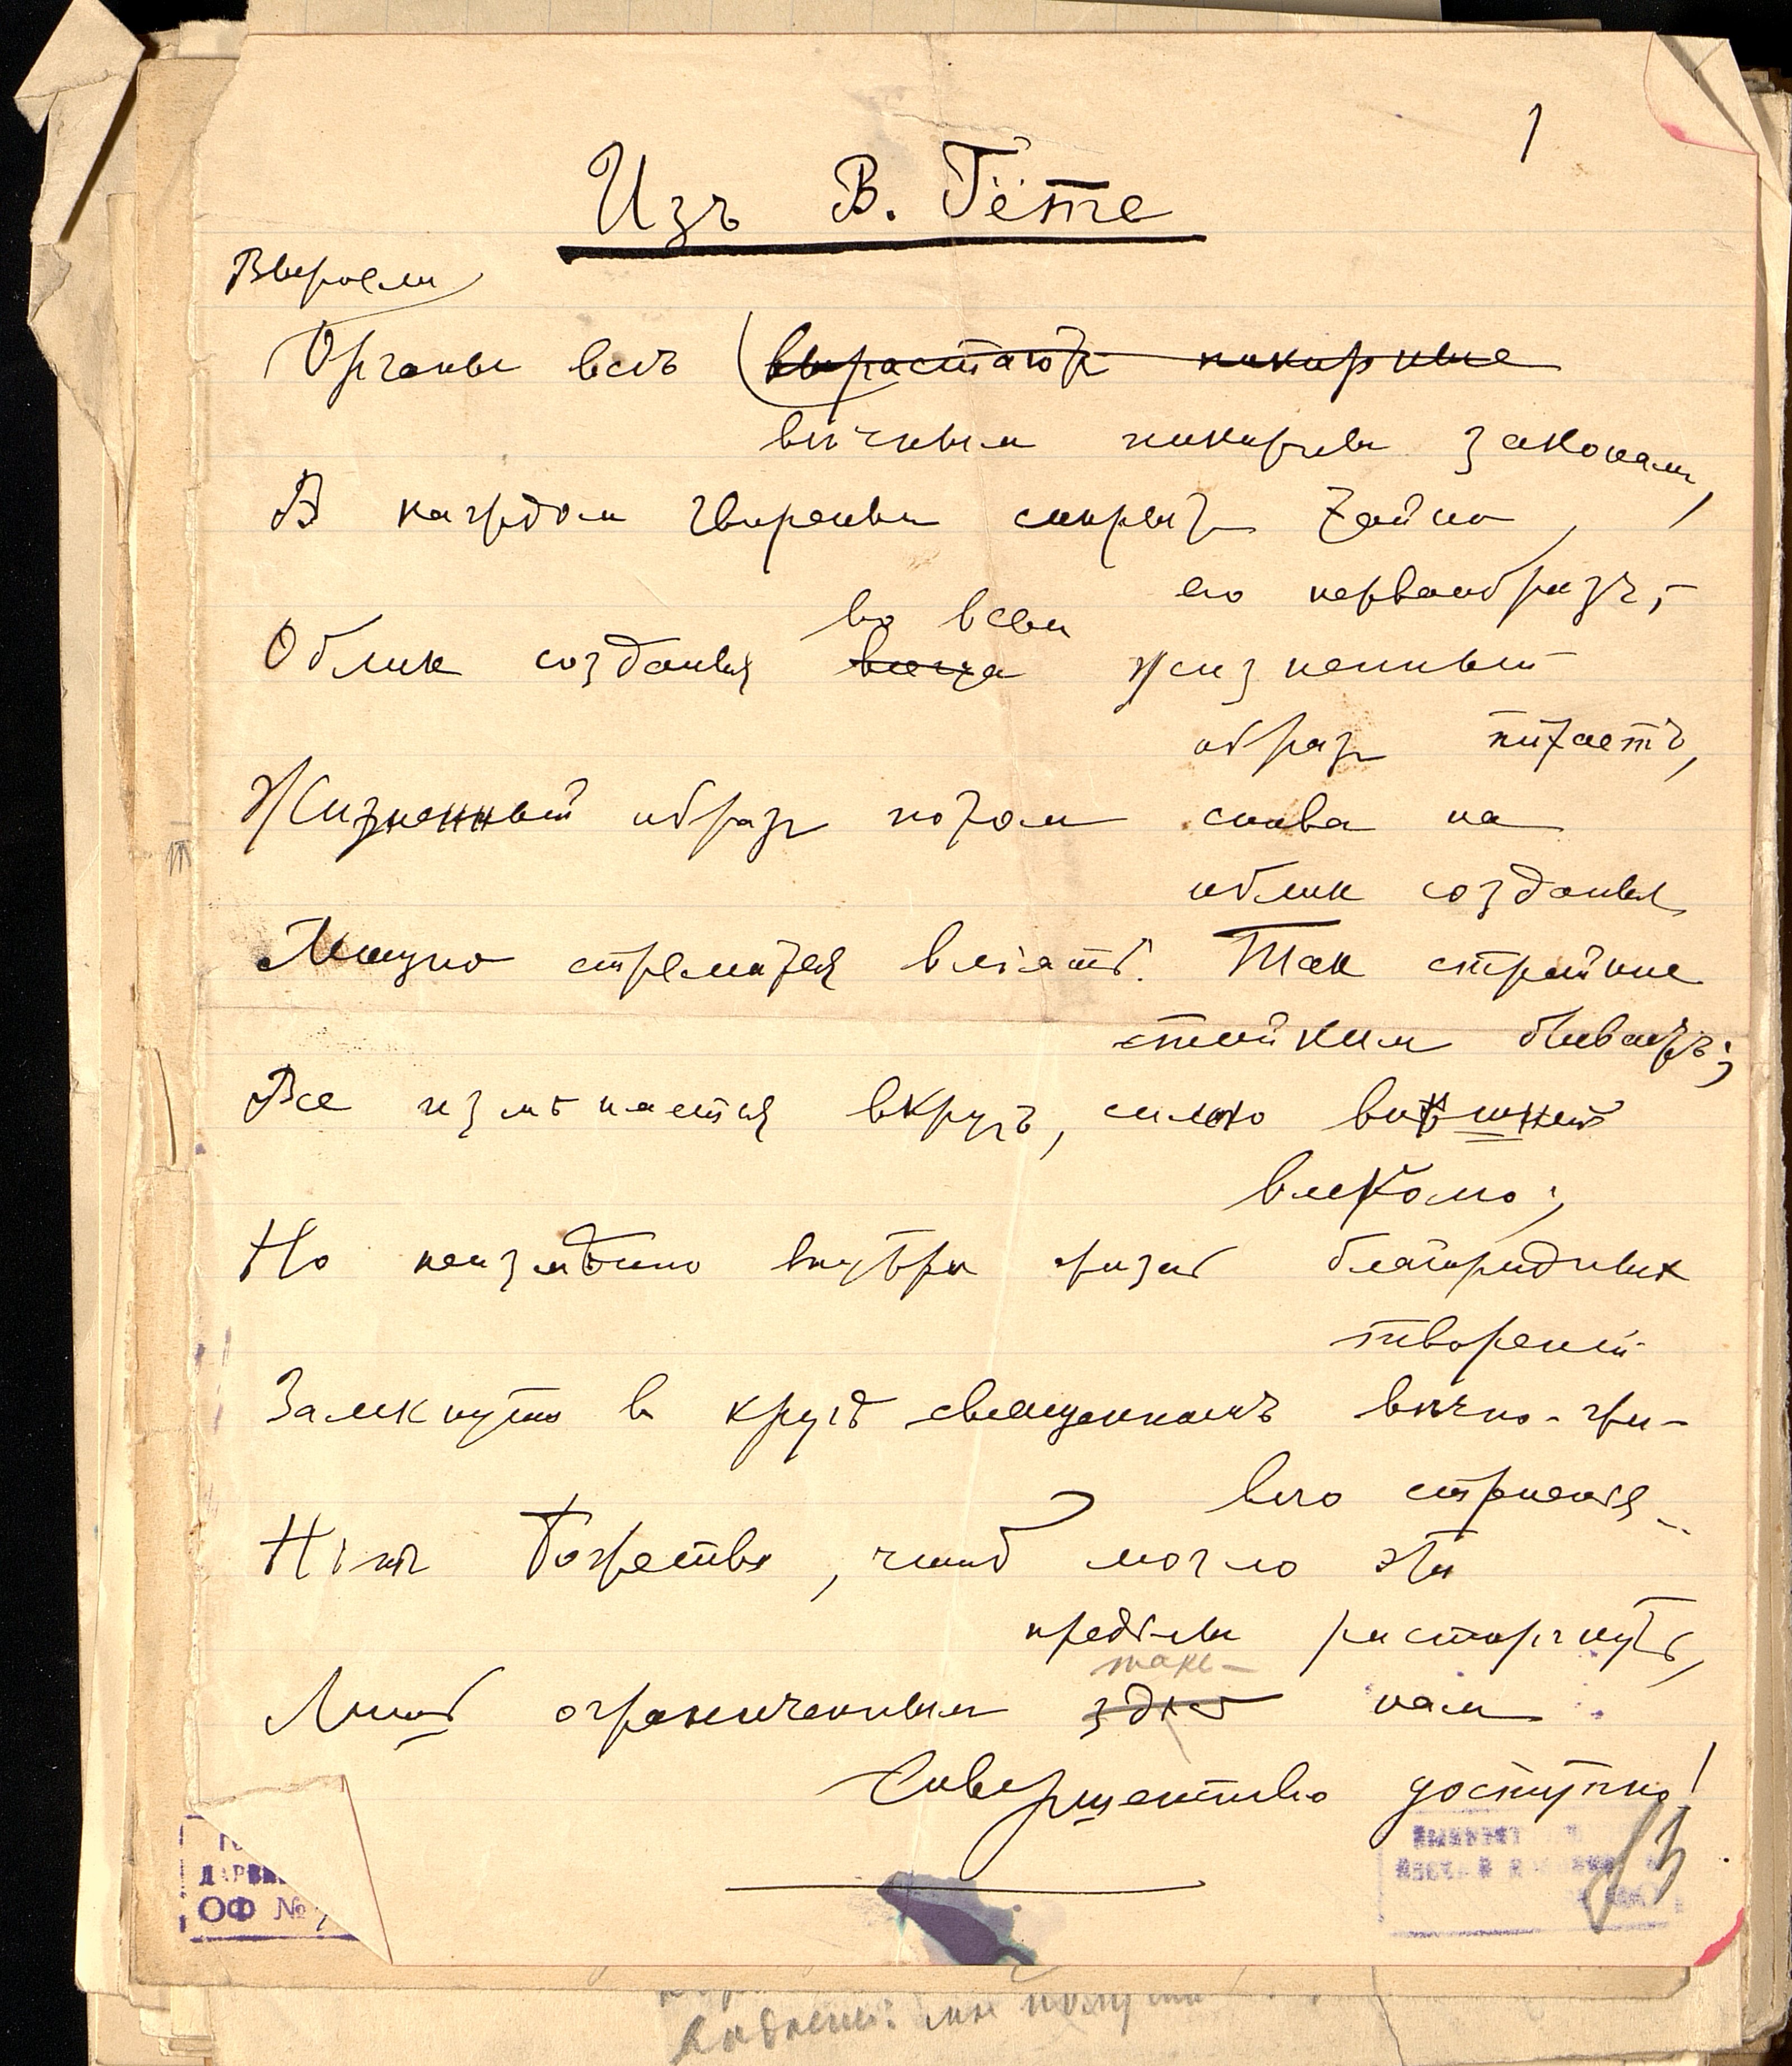 1
Изъ В. Гёте
Выросли
Органы всѣ вырастаютъ покорные
вѣчным покорны законам,
В каждом творении скрыт тайно,
его первообразъ,-
во всем
Облик созданья всегда жизненный
образ питаетъ,
Жизненный образ потом снова на
облик созданья
Мощно стремится вліять. Так стройное
стойким бываетъ;
Все измѣняется вкругъ, силою внѣшней
влекомо;
Но неизмѣнно внутри жизнь благородных
творений
Замкнута в кругѣ священномъ вѣчно-жи-
вого строенія..
Нѣт Божества, чтоб могло эти
предѣлы расторгнуть,
такъ-
Лишь ограниченным здѣсь нам
Совершенство доступно!
ОФ №